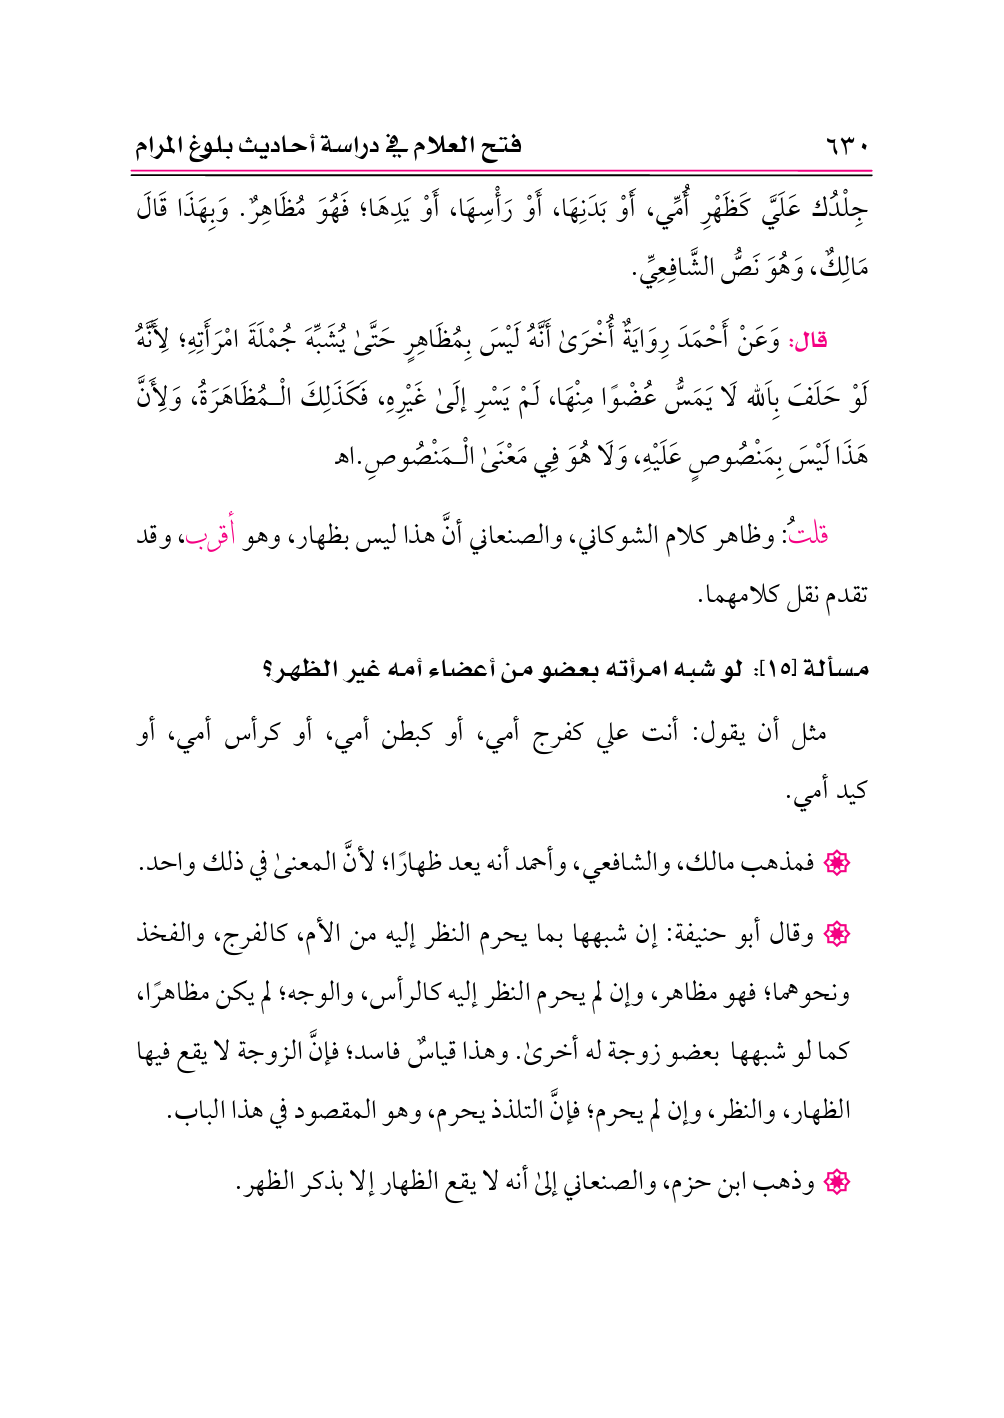 ٦٣٠ فتح العلام في دراسة أحاديث بلوغ المرام
جِلْدُك عَلَيَّ كَظَهْرِ أُمِّي، أَوْ بَدَنِهَا، أَوْ رَأْسِهَا، أَوْ يَدِهَا؛ فَهُوَ مُظَاهِرٌ. وَبِهَذَا قَالَ
مَالِكٌ، وَهُوَ نَصُّ الشَّافِعِيِّ.
قال: وَعَنْ أَحْمَدَ رِوَايَةٌ أُخْرَىٰ أَنَّهُ لَيْسَ بِمُظَاهِرٍ حَتَّىٰ يُشَبِّهَ جُمْلَةَ امْرَأَتِهِ؛ لِأَنَّهُ
لَوْ حَلَفَ بِالله لَا يَمَسُّ عُضْوًا مِنْهَا، لَمْ يَسْرِ إلَىٰ غَيْرِهِ، فَكَذَلِكَ الْـمُظَاهَرَةُ، وَلِأَنَّ
هَذَا لَيْسَ بِمَنْصُوصٍ عَلَيْهِ، وَلَا هُوَ فِي مَعْنَىٰ الْـمَنْصُوصِ.اﻫ
قلتُ: وظاهر كلام الشوكاني، والصنعاني أنَّ هذا ليس بظهار، وهو أقرب، وقد
تقدم نقل كلامهما.
مسألة [١٥]: لو شبه امرأته بعضو من أعضاء أمه غير الظهر؟
مثل أن يقول: أنت علي كفرج أمي، أو كبطن أمي، أو كرأس أمي، أو
كيد أمي.
فمذهب مالك، والشافعي، وأحمد أنه يعد ظهارًا؛ لأنَّ المعنىٰ في ذلك واحد.
وقال أبو حنيفة: إن شبهها بما يحرم النظر إليه من الأم، كالفرج، والفخذ
ونحوهما؛ فهو مظاهر، وإن لم يحرم النظر إليه كالرأس، والوجه؛ لم يكن مظاهرًا،
كما لو شبهها بعضو زوجة له أخرىٰ. وهذا قياسٌ فاسد؛ فإنَّ الزوجة لا يقع فيها
الظهار، والنظر، وإن لم يحرم؛ فإنَّ التلذذ يحرم، وهو المقصود في هذا الباب.
وذهب ابن حزم، والصنعاني إلىٰ أنه لا يقع الظهار إلا بذكر الظهر.